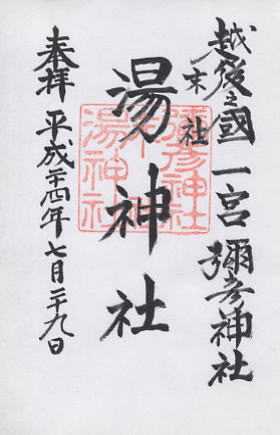 越後之國一宮 彌彦神社
末社
湯神社
奉拝 平成二十四年七月二十九日
彌彦神社
末社
湯神社